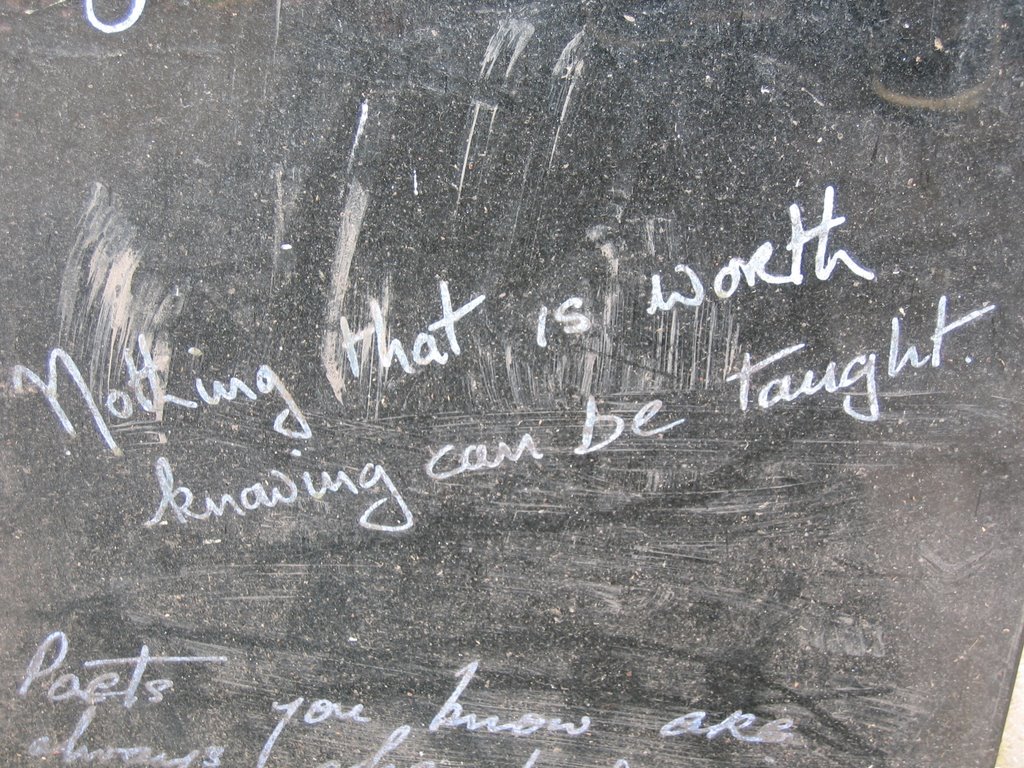 Nothing that is worth
knowing can be taught.
Poets you know are
always